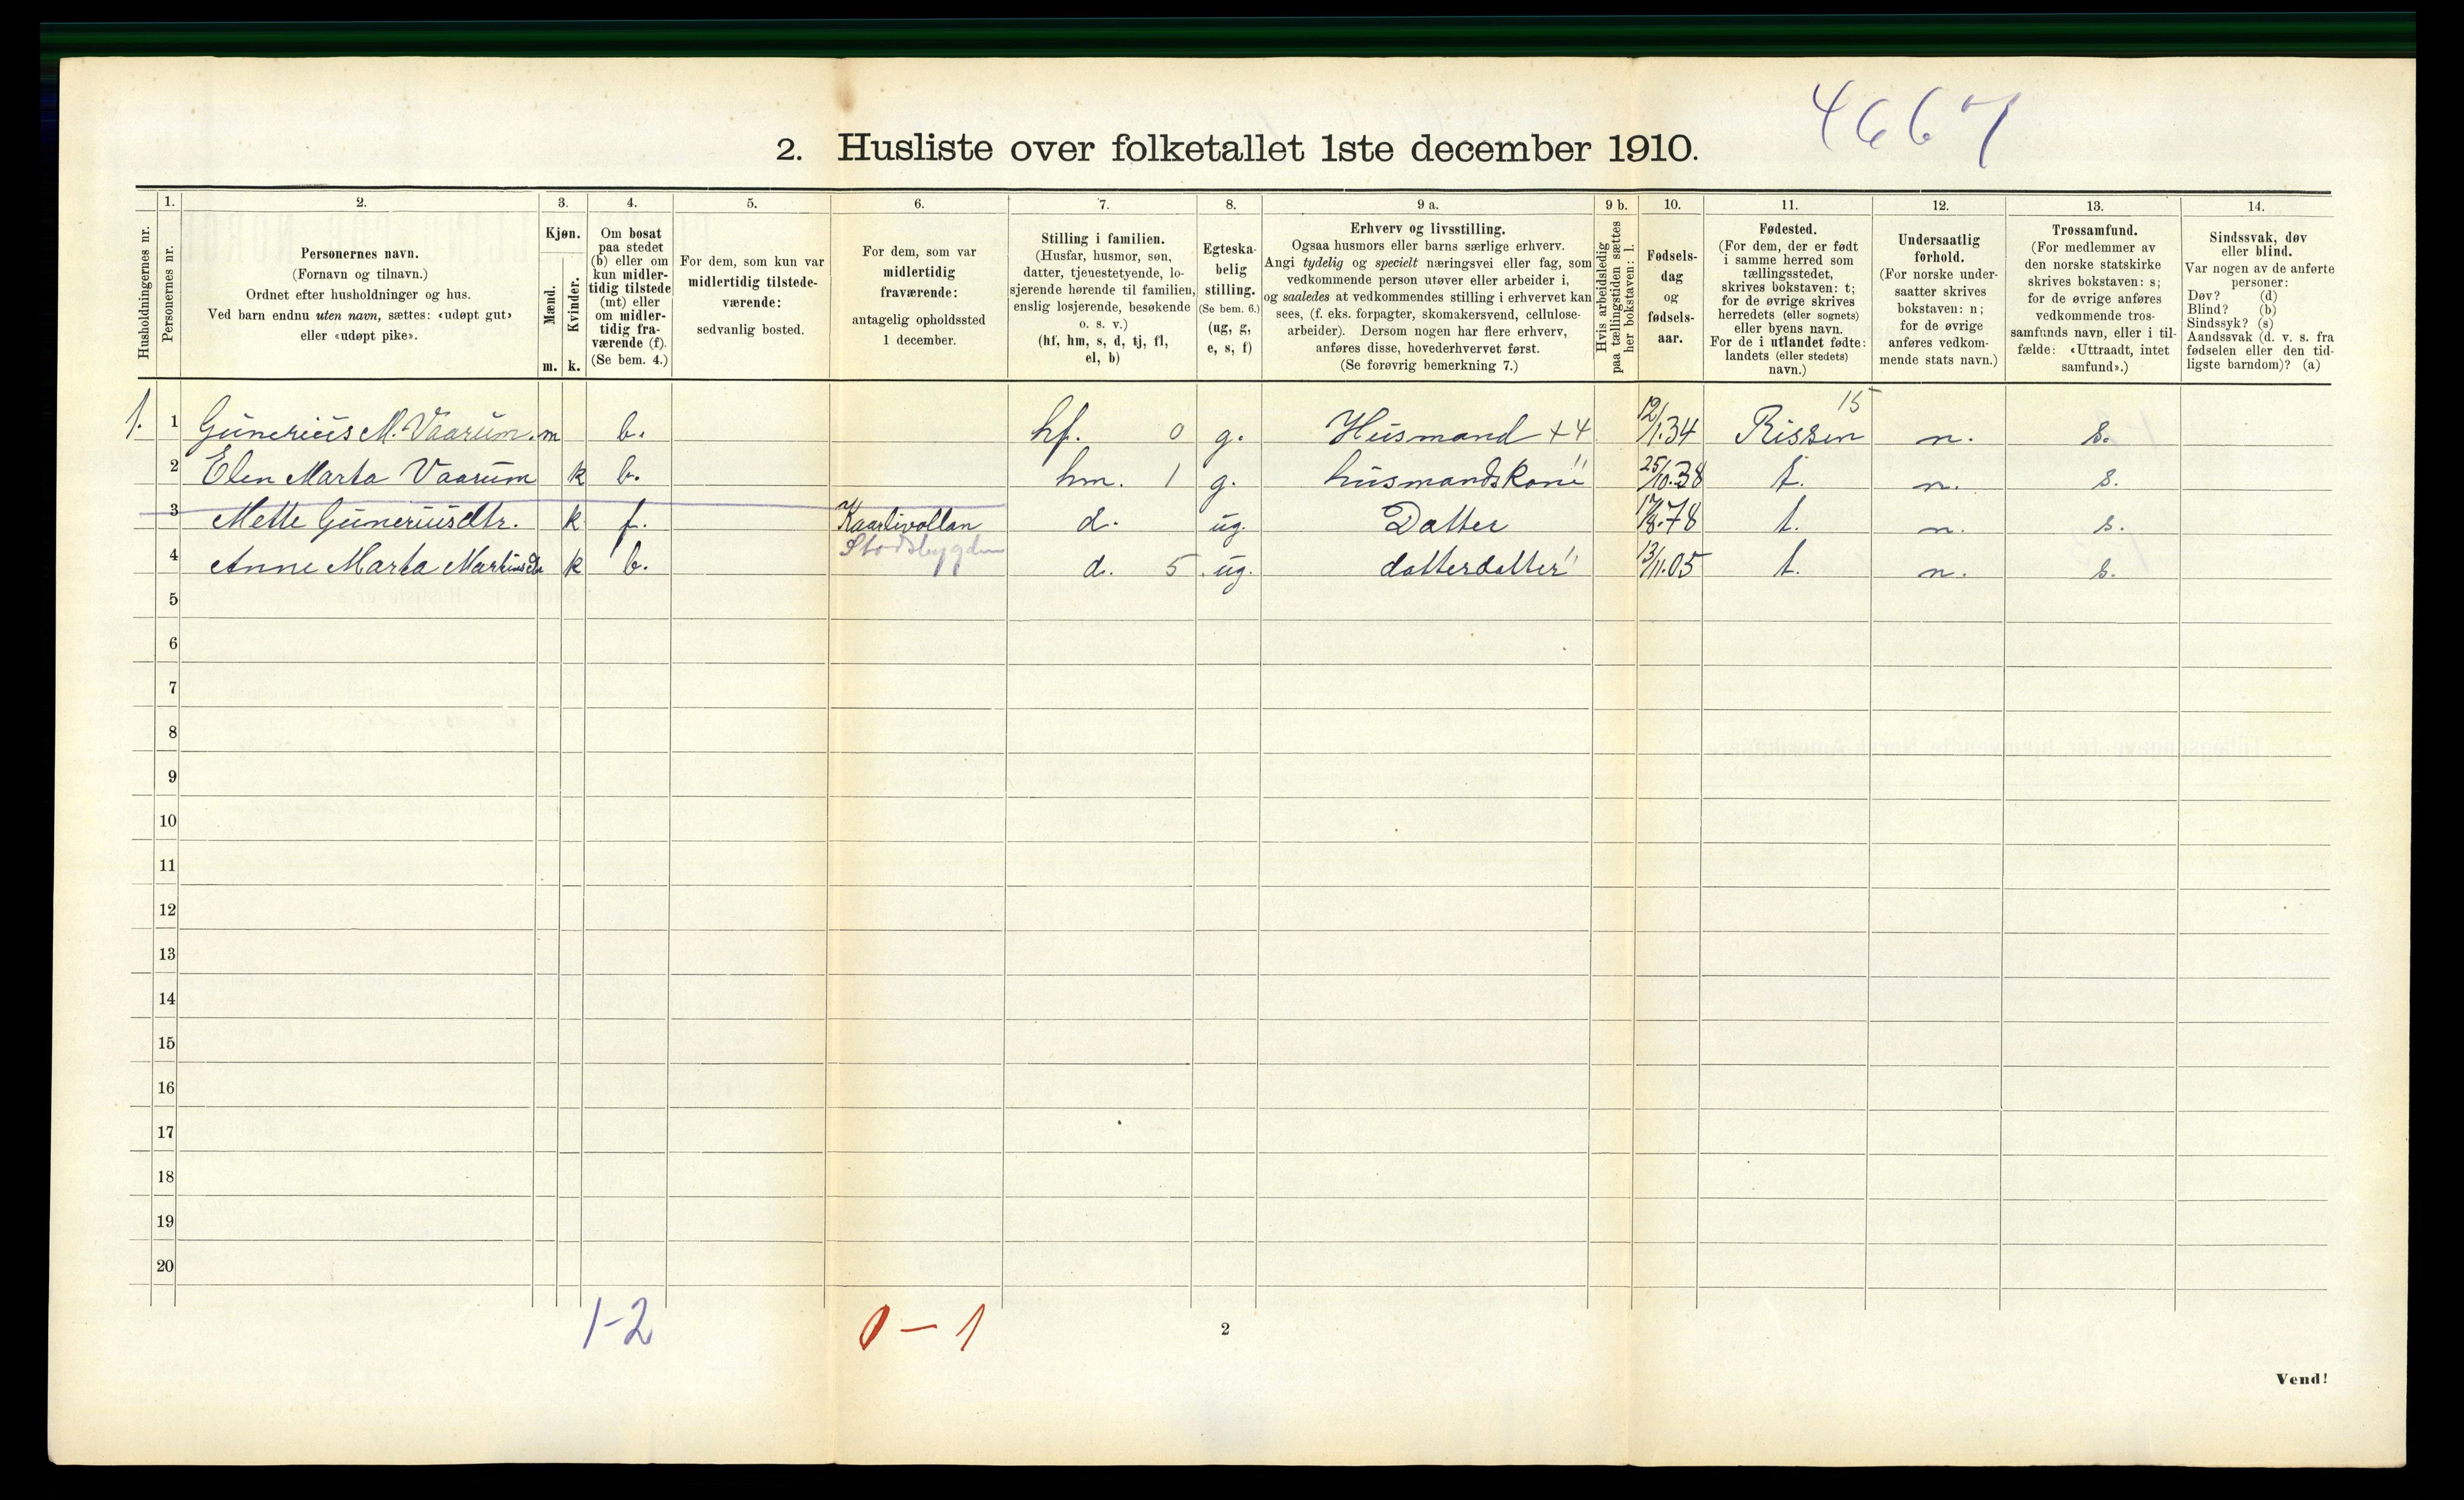 4667
2. Husliste over folketallet 1ste december 1910.
Husholdningernes nr.
1.
Personernes nr.
2.
Personernes navn.
(Fornavn og tilnavn.)
Ordnet efter husholdninger og hus.
Ved barn endnu uten navn, sættes: «udøpt gut»
eller «udøpt pike».
3.
Kjøn.
Mænd.
Kvinder.
m. k.
4.
Om bosat
paa stedet
(b) eller om
kun midler-
tidig tilstede
(mt) eller
om midler-
tidig fra-
værende (f).
(Se bem. 4.)
5.
For dem, som kun var
midlertidig tilstede-
værende:
sedvanlig bosted.
6.
For dem, som var
midlertidig
fraværende:
antagelig opholdssted
1 december.
7.
Stilling i familien.
(Husfar, husmor, søn,
datter, tjenestetyende, lo-
sjerende hørende til familien,
enslig losjerende, besøkende
o. s. v.)
(hf, hm, s, d, tj, fl,
el, b)
8.
Egteska-
belig
stilling.
(Se bem. 6.)
(ug, g,
e, s, f)
9 a.
Erhverv og livsstilling.
Ogsaa husmors eller barns særlige erhverv.
Angi tydelig og specielt næringsvei eller fag, som
vedkommende person utøver eller arbeider i,
og saaledes at vedkommendes stilling i erhvervet kan
sees, (f. eks. forpagter, skomakersvend, cellulose-
arbeider). Dersom nogen har flere erhverv,
anføres disse, hovederhvervet først.
(Se forøvrig bemerkning 7.)
9 b.
Hvis arbeidsledig
paa tællingstiden sættes
her bokstaven: l.
10.
Fødsels-
dag
og
fødsels-
aar.
11.
Fødested.
(For dem, der er født
i samme herred som
tællingsstedet,
skrives bokstaven: t;
for de øvrige skrives
herredets (eller sognets)
eller byens navn.
For de i utlandet fødte:
landets (eller stedets)
navn.)
12.
Undersaatlig
forhold.
(For norske under-
saatter skrives
bokstaven: n;
for de øvrige
anføres vedkom-
mende stats navn.)
13.
Trossamfund.
(For medlemmer av
den norske statskirke
skrives bokstaven: s;
for de øvrige anføres
vedkommende tros-
samfunds navn, eller i til-
fælde: «Uttraadt, intet
samfund».)
14.
Sindssvak, døv
eller blind.
Var nogen av de anførte
personer:
Døv? (d)
Blind? (b)
Sindssyk? (s)
Aandssvak (d. v. s. fra
fødselen eller den tid-
ligste barndom)? (a)
15
1. 1 Gunerius M. Vaarum. m b. hf. 0 g. Husmand +4 12/1.34 Rissen n. s.
2 Elen Marta Vaarum k b. hm. 1 g. husmandskone " 25/10.38 t. n. s.
3 Mette Guneriusdtr. k f. Kaarlivollan d. ug. Datter 17/8.78 t. n. s.
Stadsbygden
4 Anne Marta Martinsdtr k b. d. 5 ug. datterdatter " 13/11.05 t. n. s.
5
6
7
8
9
10
11
12
13
14
15
16
17
18
19
20
1-2
0 - 1
2
Vend!